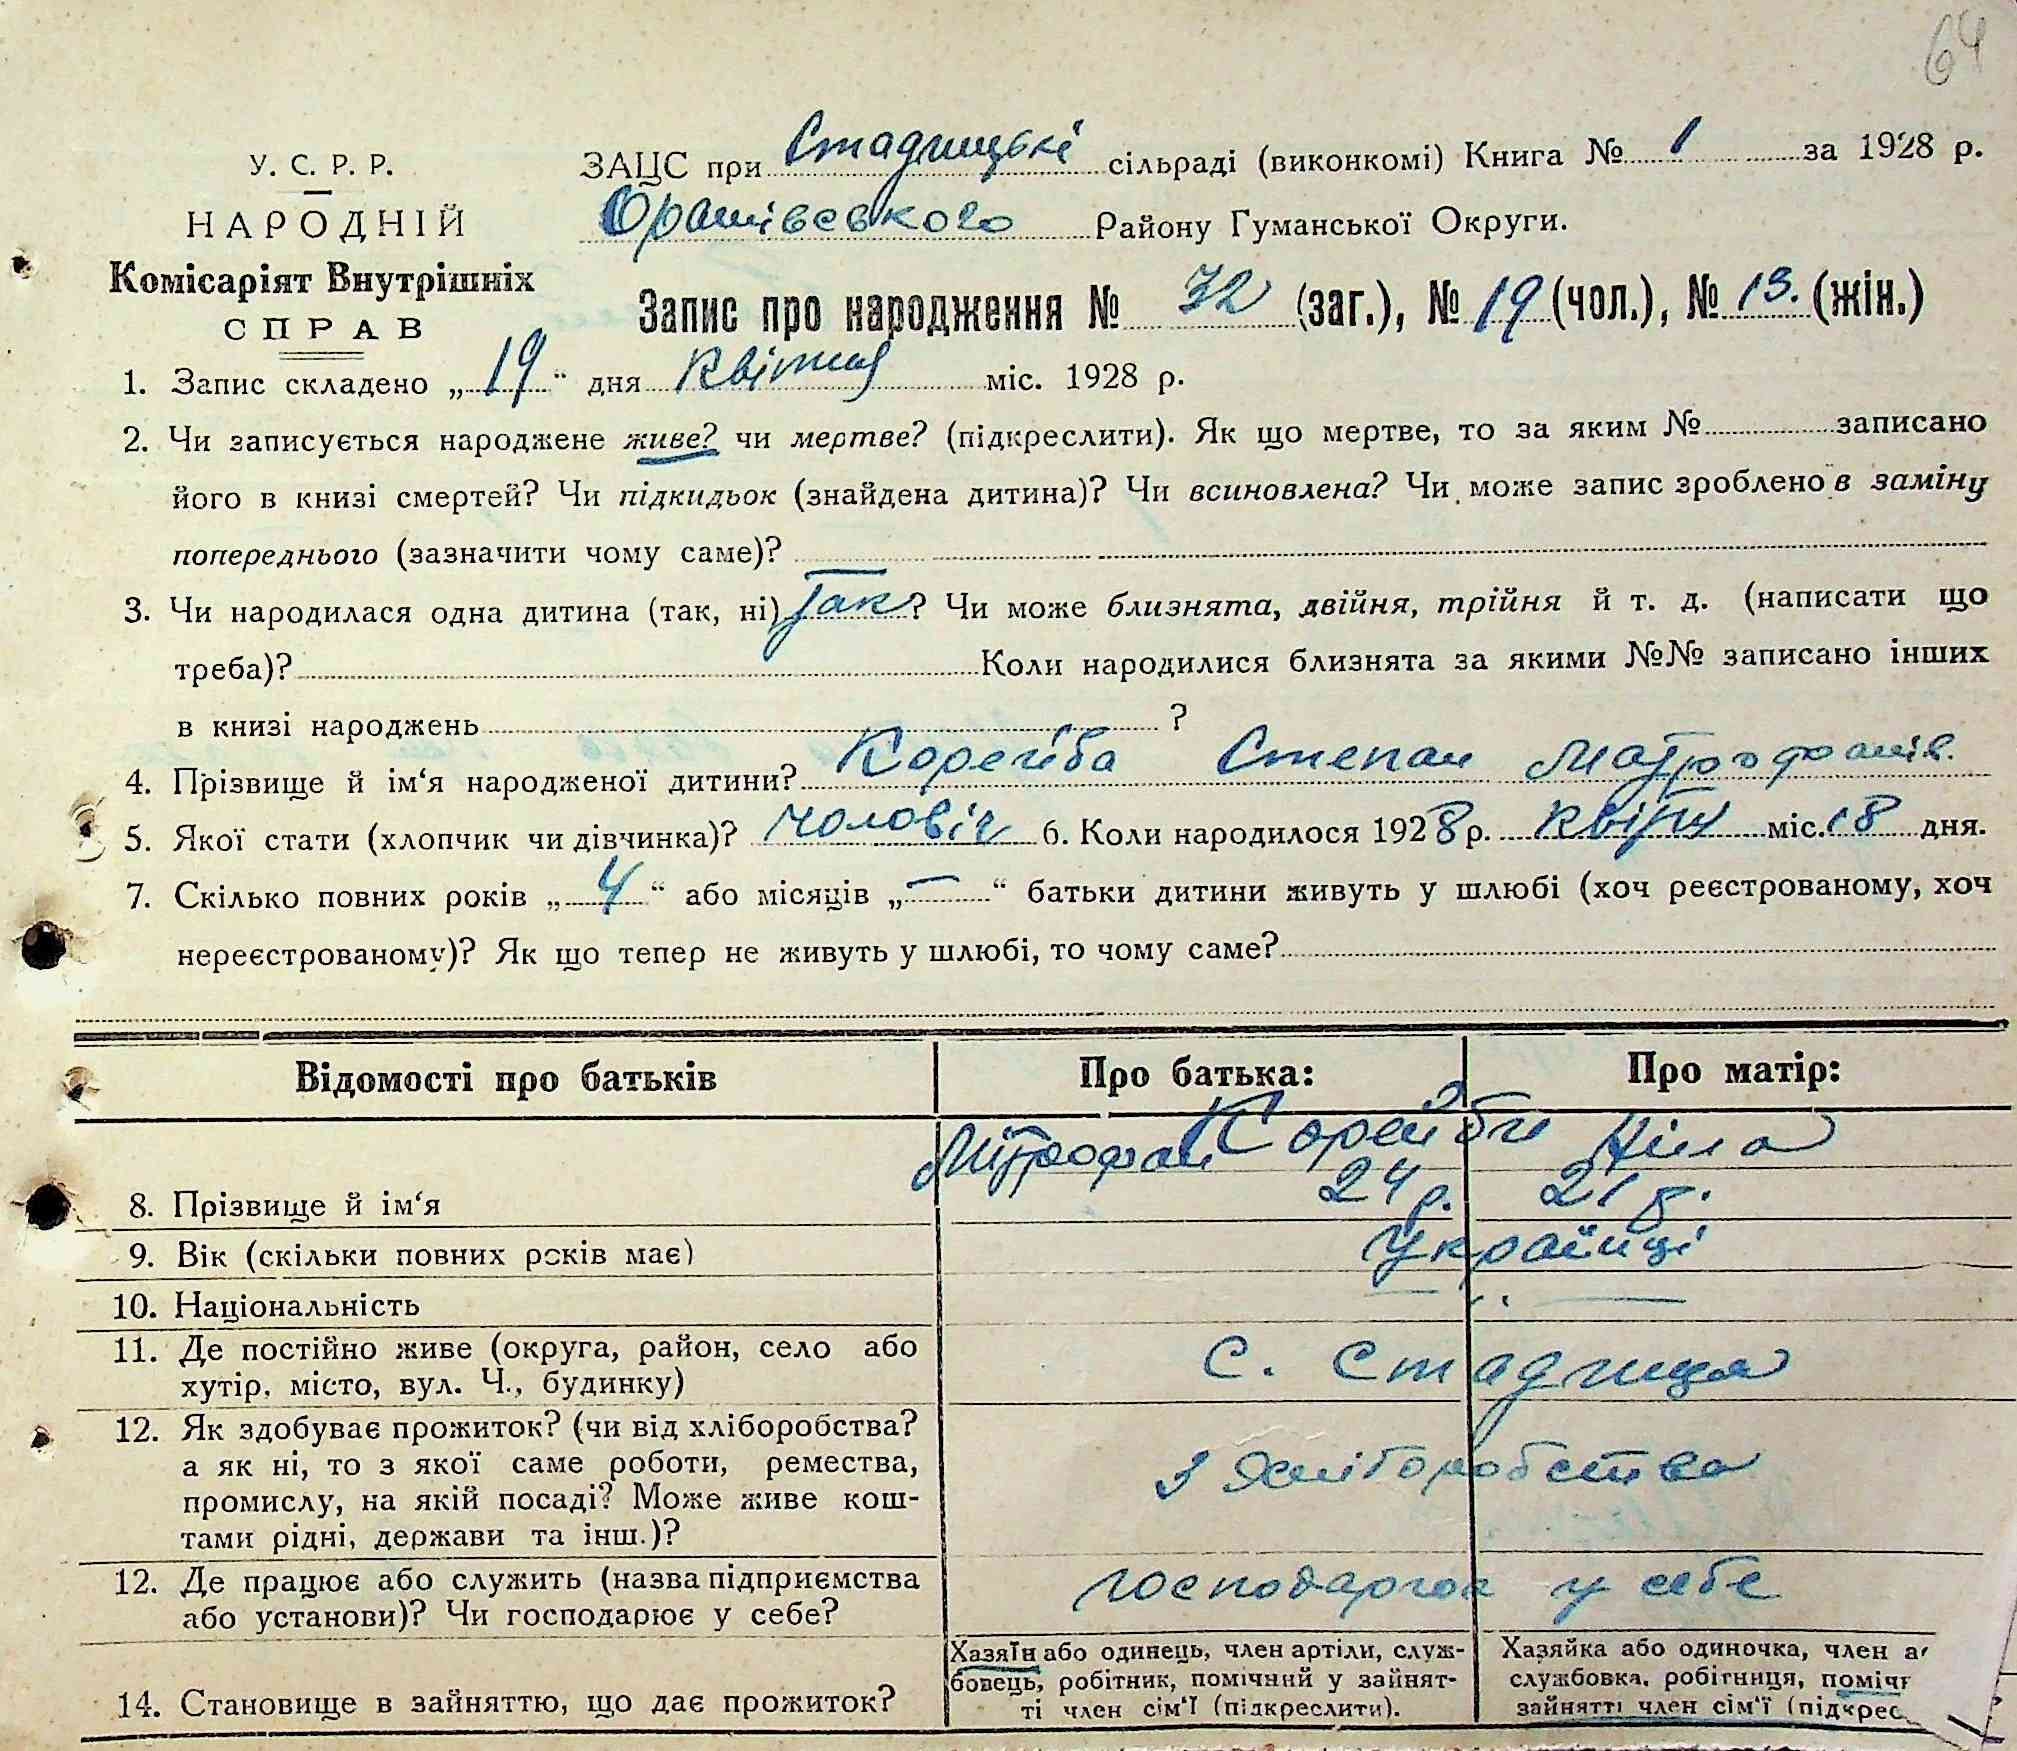 64
У. С. Р. Р.
НАРОДНІЙ
Комісаріят Внутрішніх
СПРАВ
ЗАЦС при Стадницькі сільраді (виконкомі) Книга № 1 за 1928 р.
Оратівського Району Гуманської Округи.
Запис про народження № 32 (заг.), № 19 (чол.), № 13. (жін.)
1. Запис складено „19“ дня квітня міс. 1928 р.
2. Чи записується народжене живе? чи мертве? (підкреслити). Як що мертве, то за яким № записано
його в книзі смертей? Чи підкидьок (знайдена дитина)? Чи всиновлена? Чи може запис зроблено в заміну
попереднього (зазначити чому саме)?
3. Чи народилася одна дитина (так, ні) Так? Чи може близнята, двійня, трійня й т. д. (написати що
треба)? Коли народилися близнята за якими №№ записано інших
в книзі народжень ?
4. Прізвище й ім‘я народженої дитини? Степан
5. Якої стати (хлопчик чи дівчинка)? чоловіч 6. Коли народилося 1928 р. квітн міс. 18 дня.
7. Скілько повних років „4“ або місяців „—“ батьки дитини живуть у шлюбі (хоч реєстрованому, хоч
нереєстрованому)? Як що тепер не живуть у шлюбі, то чому саме?
Відомості про батьків Про батька: Про матір:
8. Прізвище й ім‘я Мітрофан Корейби Ніна
9. Вік (скільки повних років має) 24 р. 21 р.
10. Національність Українці
11. Де постійно живе (округа, район, село або
хутір, місто, вул. Ч., будинку)
с. Стадниця
12. Як здобуває прожиток? (чи від хліборобства?
а як ні, то з якої саме роботи, ремества,
промислу, на якій посаді? Може живе кош-
тами рідні, держави та інш.)?
з хліборобства
12. Де працює або служить (назва підприємства
або установи)? Чи господарює у себе?
у себе
14. Становище в зайняттю, що дає прожиток?
Хазяїн або одинець, член артіли, служ-
бовець, робітник, помічний у зайнят-
ті член сім‘ї (підкреслити).
Хазяйка або одиночка, член
службовка, робітниця,
зайнятті член сім‘ї